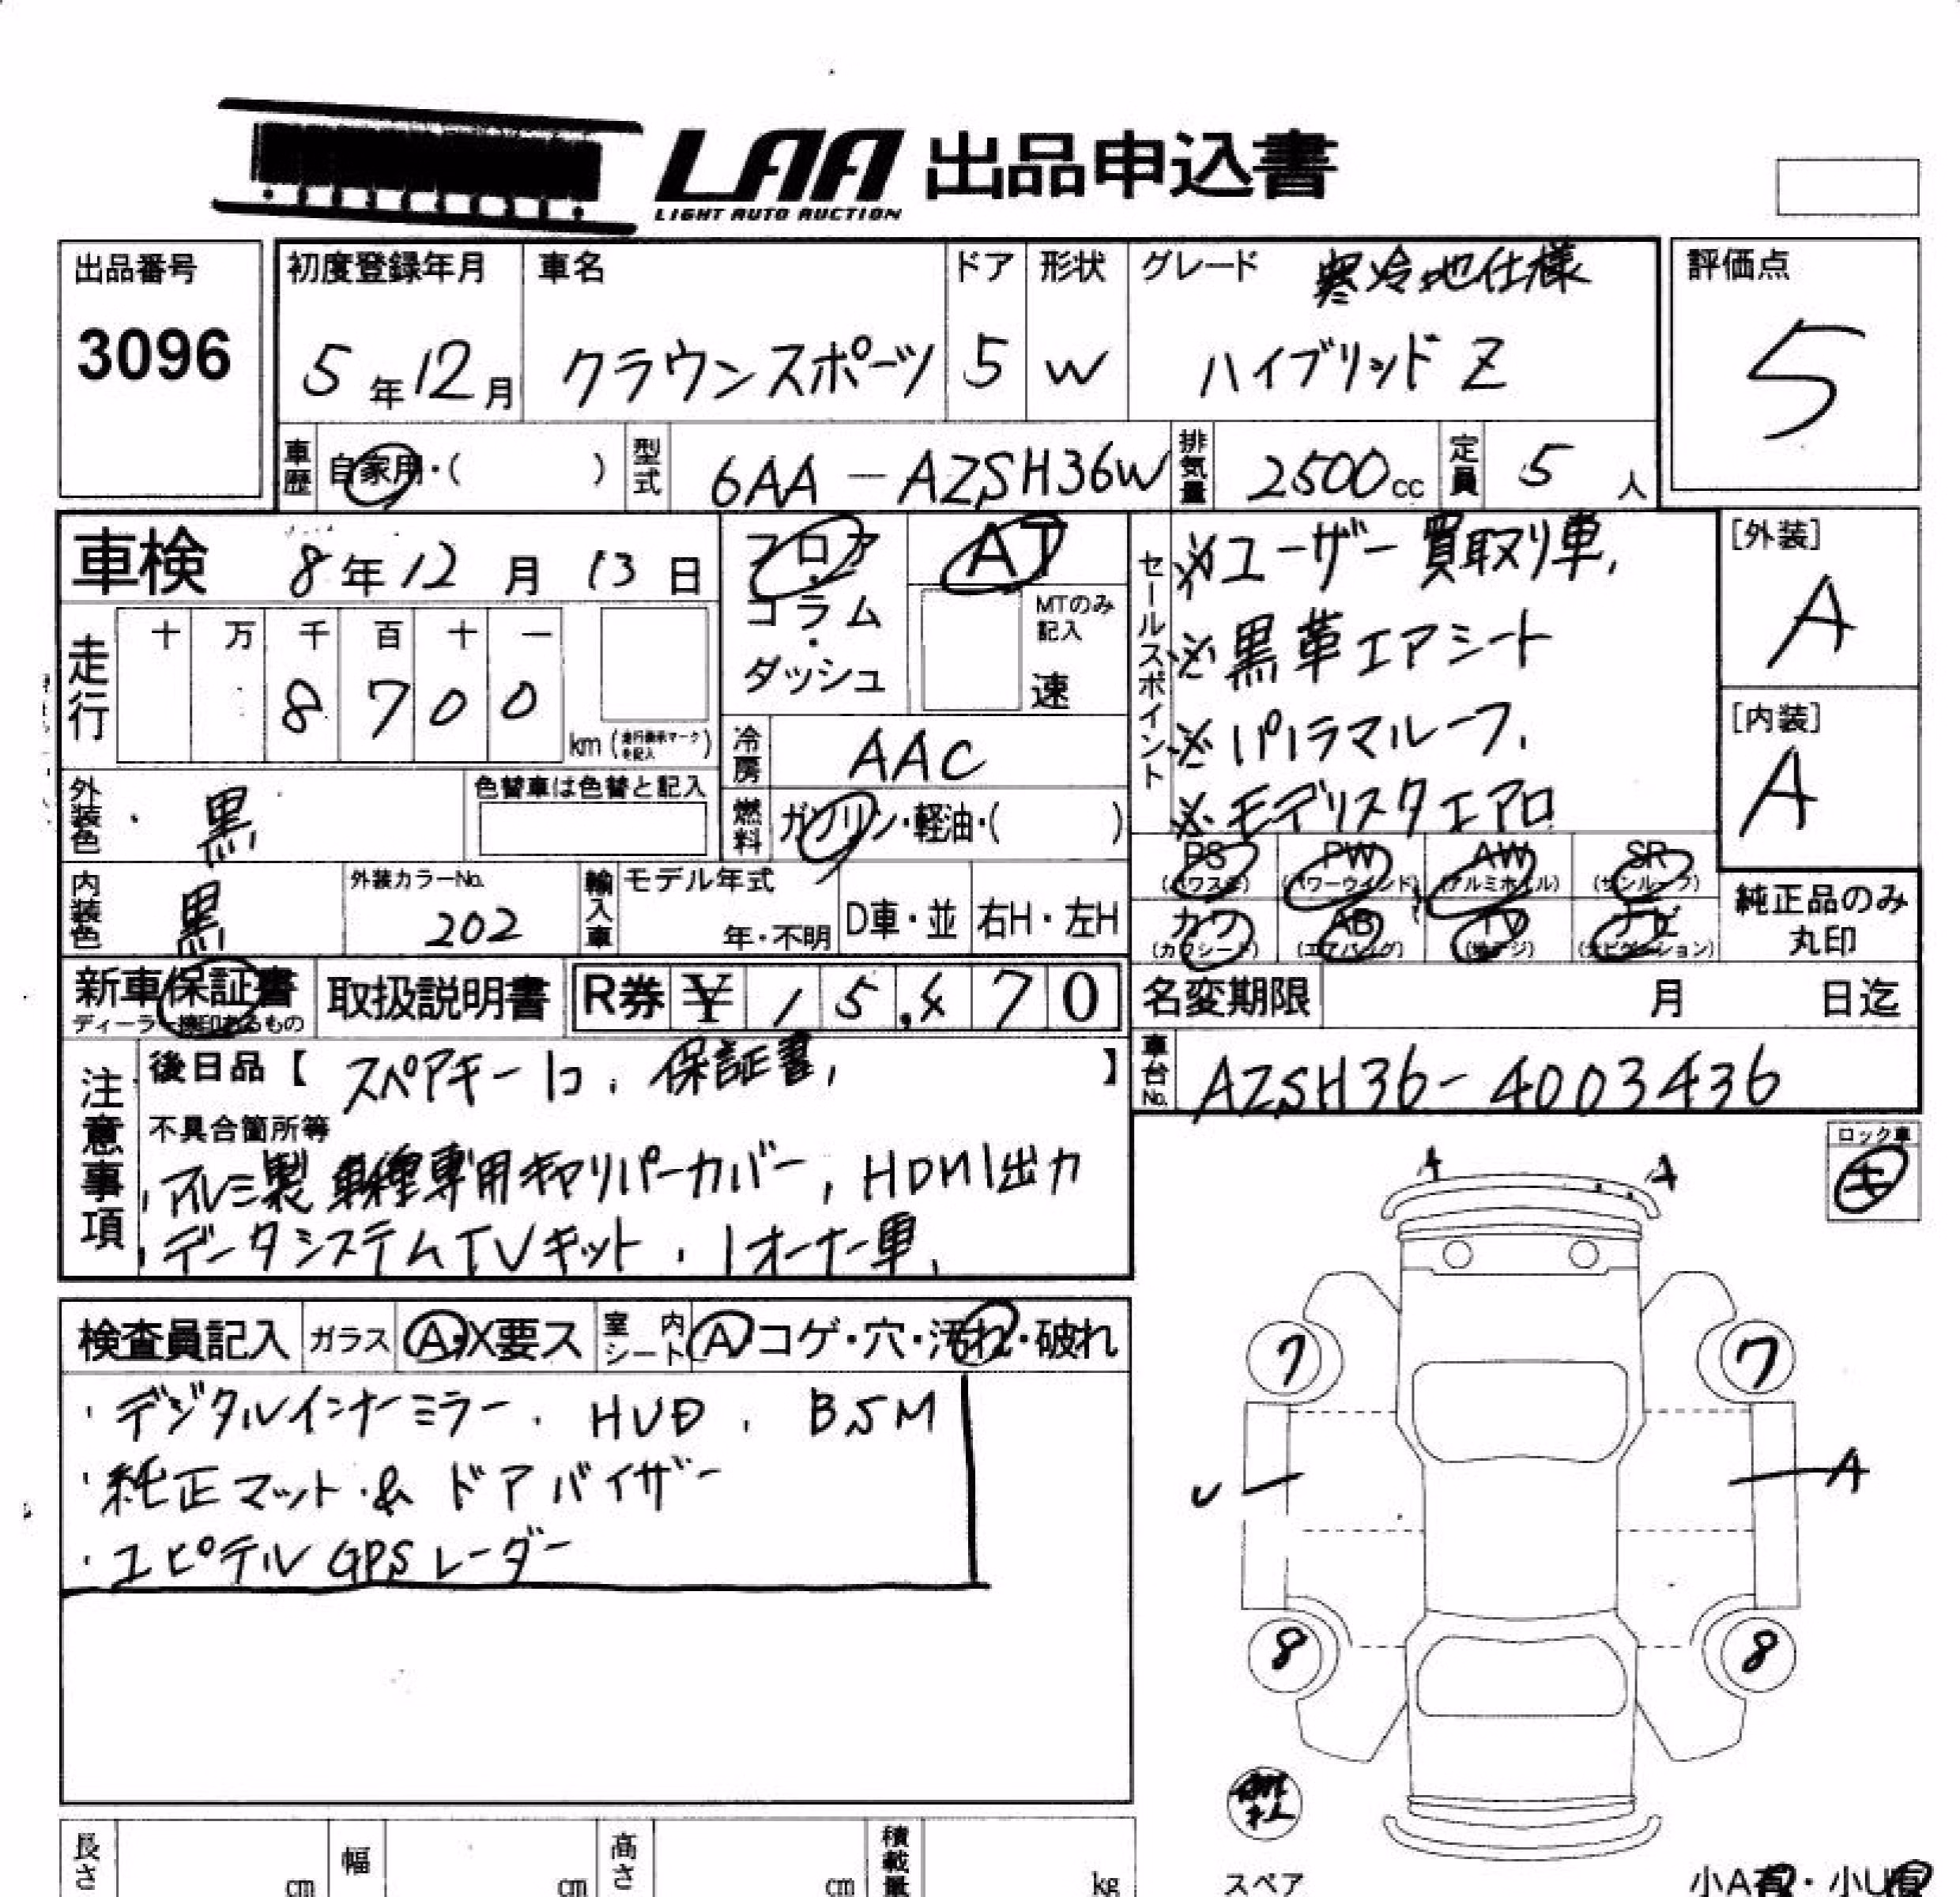 LAA 出品申込書
LIGHT AUTO AUCTION
出品番号
3096
初度登録年月
5年12月
車名
クラウンスポーツ
ドア
5
形状
W
グレード 寒冷地仕様
ハイブリッド Z
評価点
5
車歴 自家用・( )
型式 6AA-AZSH36W
排気量 2500cc
定員 5人
車検 8年12月13日
フロア・コラム・ダッシュ
AT
MTのみ記入
速
走行
十 万 千 百 十 一
8 7 0 0
km (走行表示マークを記入)
冷房 AAC
燃料 ガソリン・軽油・( )
外装色 黒
色替車は色替と記入
内装色 黒
外装カラーNo.
202
輸入車 モデル年式
年・不明
D車・並 右H・左H
セールスポイント
※ユーザー買取り車.
※黒革エアシート
※パノラマルーフ.
※モデリスタエアロ
[外装]
A
[内装]
A
PS (パワステ) PW (パワーウインド) AW (アルミホイル) SR (サンルーフ)
カワ (カワシート) AB (エアバッグ) TV (地デジ) ナビ (ナビゲーション)
純正品のみ
丸印
新車保証書
ディーラー捺印あるもの
取扱説明書
R券 ¥ 15,470
名変期限 月 日迄
車台No. AZSH36-4003436
注意事項
後日品【 スペアキー1コ, 保証書, 】
不具合箇所等
アルミ製車種専用キャリパーカバー, HDMI出力
データシステムTVキット, 1オーナー車,
ロック車
検査員記入 ガラス A・X要ス 室内シート A コゲ・穴・汚れ・破れ
・デジタルインナーミラー. HUD. BSM
・純正マット & ドアバイザー
・ユピテル GPSレーダー
A A
7 7
U A
8 8
スペア
小A有・小U有
長さ cm 幅 cm 高さ cm 積載量 kg